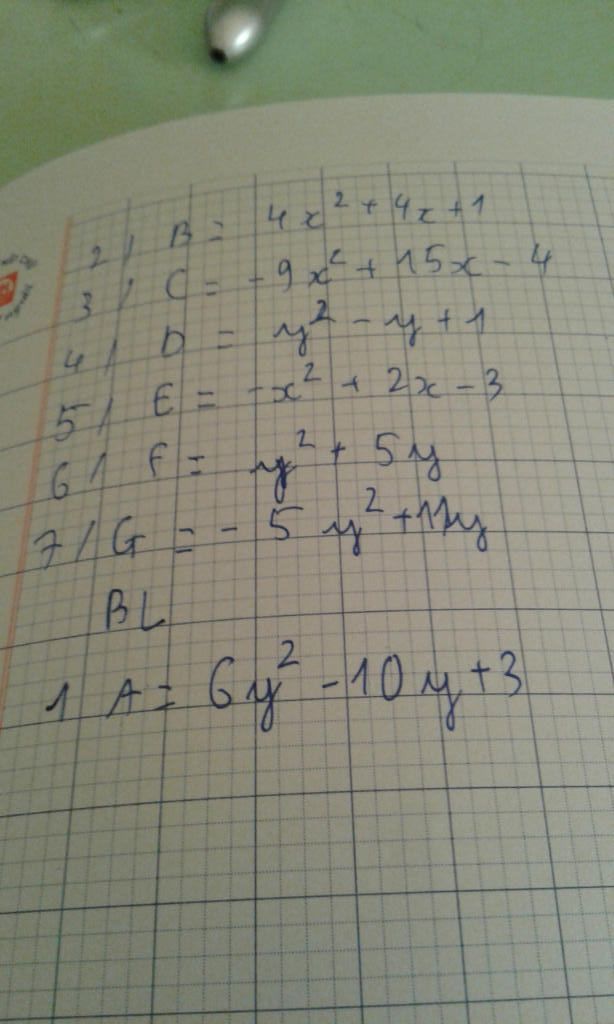 2/ B = 4x² + 4x + 1
3/ C = -9x² + 15x - 4
4/ D = y² - y + 1
5/ E = -x² + 2x - 3
6/ F = y² + 5y
7/ G = -5y² + 11y
BL
1 A = 6y² - 10y + 3